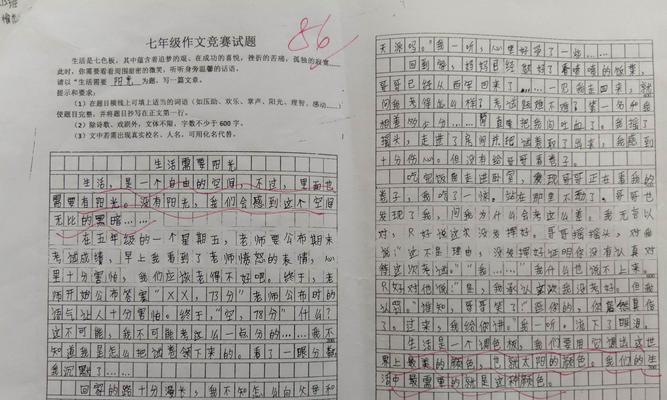 86
七年级作文竞赛试题
生活是七色板，其中蕴含着追梦的艰、在成功的喜悦，挫折的苦痛，孤独的寂寞
此时，你需要看看周围甜密的微笑，听听身旁温馨的话语。
请以“生活需要 阳光 为题，写一篇文章。
提示和要求：
（1）在题目横线上可填适当的词语（如压励、欢乐、掌声、阳光、理智、感动
使题目完整，并将题目抄写在正文第一行。
（2）除诗歌、戏剧外，文体不限，字数不少于 600 字。
（3）文中若需出现真实校名、人名，可用化名代替。
生活需要阳光
生活，是一个自由的空间，不过，里面也
需要有阳光。没有阳光，我们会感到这个空间
无比的黑暗……
在五年级的一个星期五，老师要公布期末
考试成绩，早上我看到了老师愤怒的表情，心
里十分害怕，我们应该考得不好吧。终于，老
师开始公布答案“XX，73分”老师公布时的
语气让人十分害怕。终于，“空，78分”什么？
这不可能，我不可能考这么一点分的……我不
知道我是怎么把试卷领下来的。看了一眼分数
我沉默了……
回家的路十分漫长，我不知怎么向父母和
天深吗。”我一听，心里好受了一些……
回到家，妈妈已经做好了香喷喷的饭菜，
哥哥已经从西学回来了……一见我走回来，就
问我考得怎么样了考试题难不难了第一名和我
相差几个分……简直要把我问吐血了。我摇了
摇头，走进了房间并把试卷取了出来，我感到
十分伤心。但没有给哥哥看卷子。
吃完饭我走进卧室，发现哥哥正在看我的
卷子，我呆了一保。站在那里不动了。哥哥也
发现了我，问我为什么会考这么差。我无言以
对，只好说这次没发挥好。哥哥摇摇头，对我
说：“这不是理由，没发挥好证明你没有认真对
待这次考试。”“我……”我什么也说不上来。
只好对他说“是，我承认这次我没考好。但我
认罚。”谁知，哥哥笑了“逗你的，你居然真信
了。过来，我给你讲。”我一听。流下了眼泪。
生活是一个调色板，我们要用它调出这世
界上最美的颜色，也就太阳的颜色。我们的生
活中最需要的就是这种颜色。